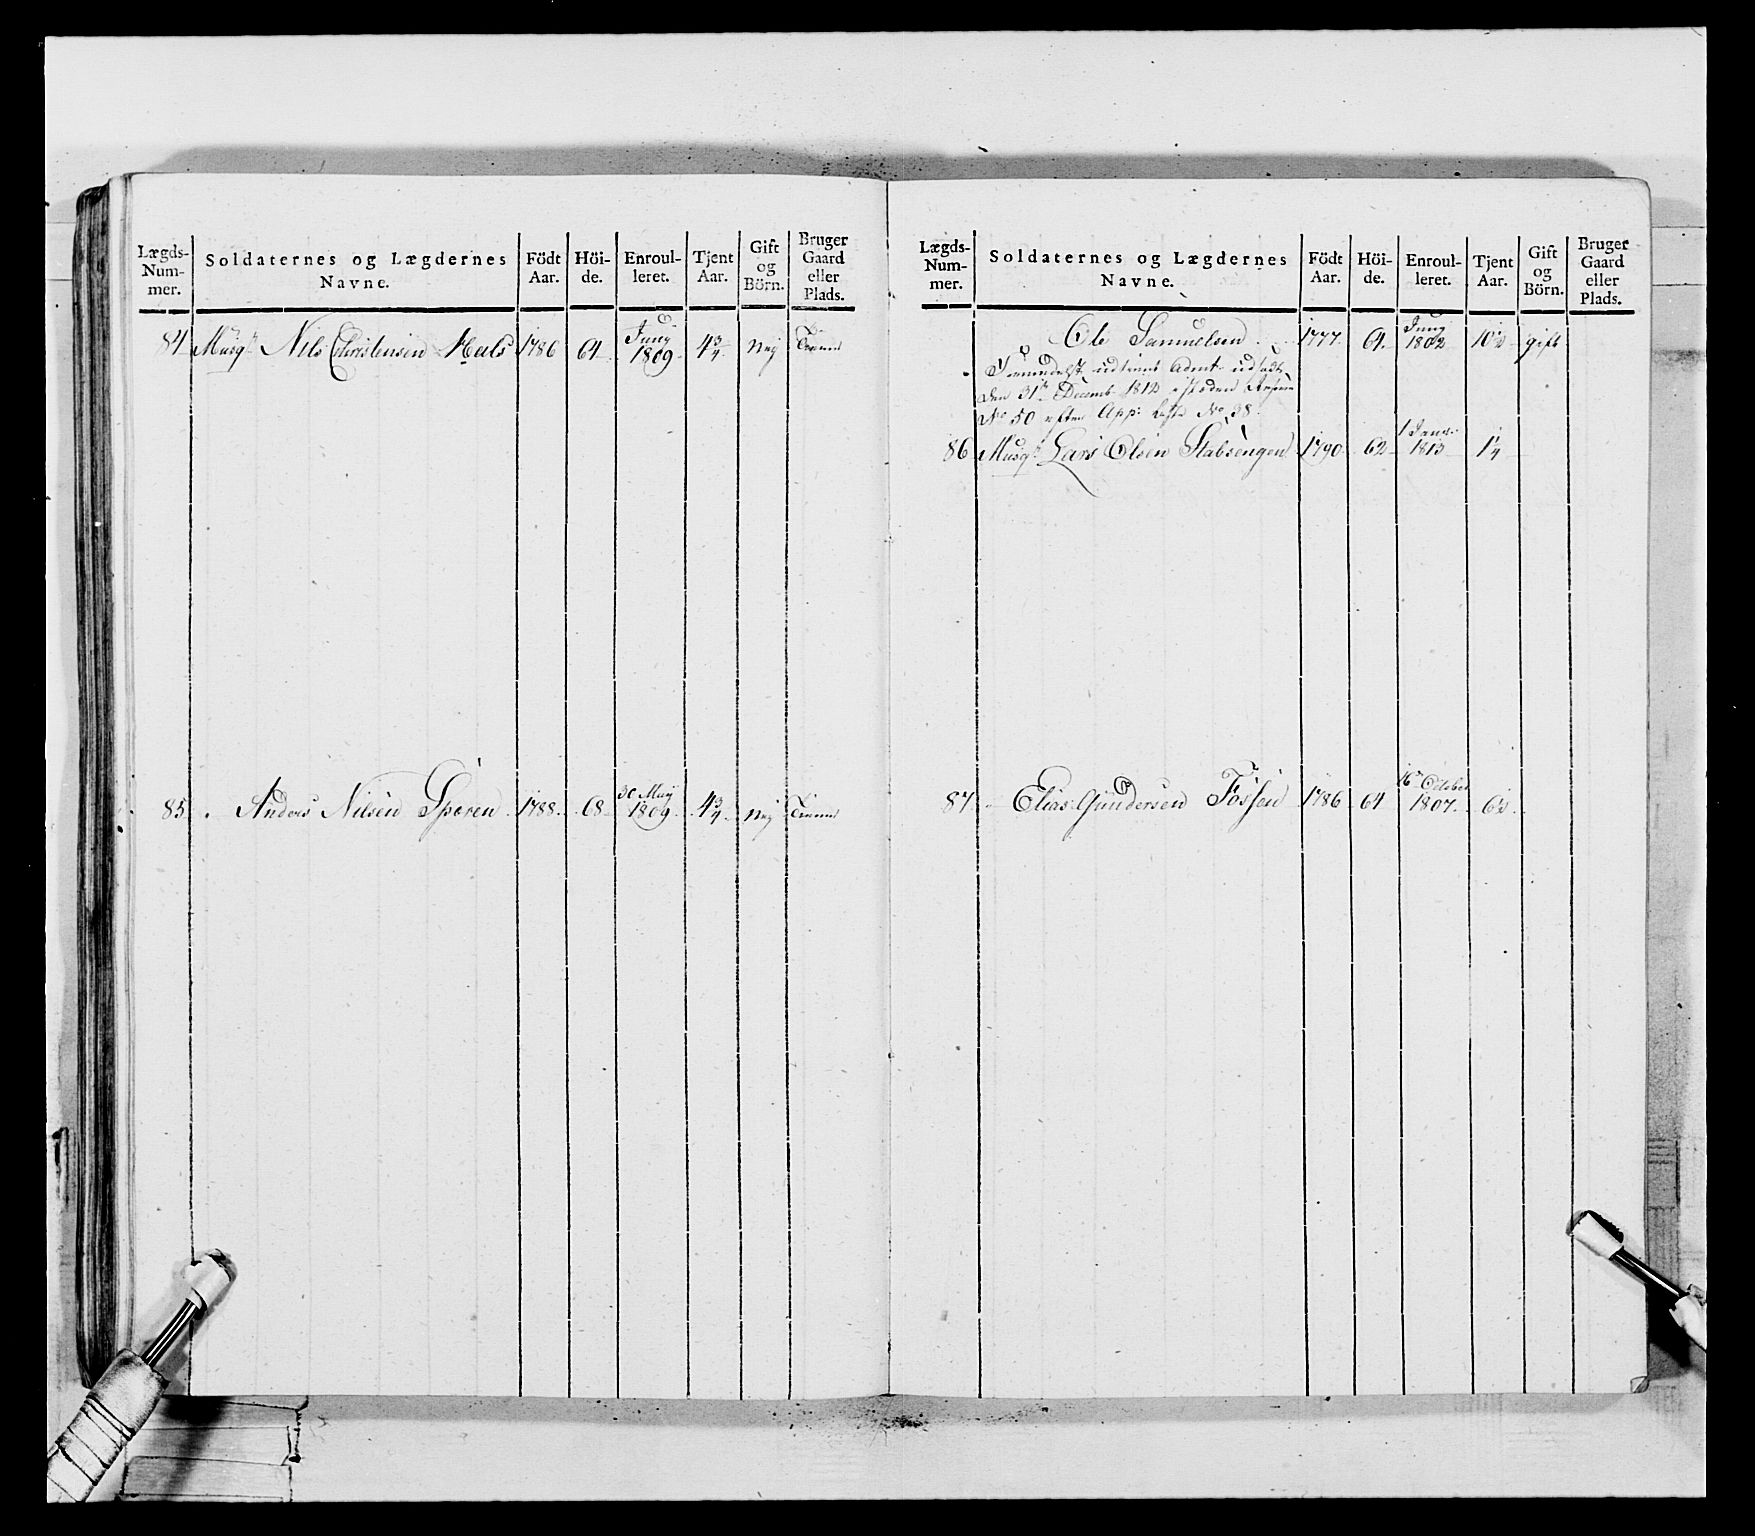 Lægds-Num-mer. Soldaternes og Lægdernes Navne. Födt Aar. Höi-de. Enroul-leret. Tjent Aar. Gift og Börn. Bruger Gaard eller Plads.
84 Musq: Nils Christensen Hals 1786 64 Juny 1809 4 3/4 Nej
85 Anders Nilsen Sporen 1788 68 30 May 1809 4 3/4 Nej
Lægds-Num-mer. Soldaternes og Lægdernes Navne. Födt Aar. Höi-de. Enroul-leret. Tjent Aar. Gift og Börn. Bruger Gaard eller Plads.
Ole Samuelsen 1777 64 Juny 1802 10 1/2 gift
udtient
den 31te Decemb 1812
No 50 efter App: No 38
86 Musq: Lars Olsen Stabsengen 1790 62 1 Janr 1813 1 1/4
87 Elias Gundersen Fossen 1786 64 16 October 1807 6 1/2